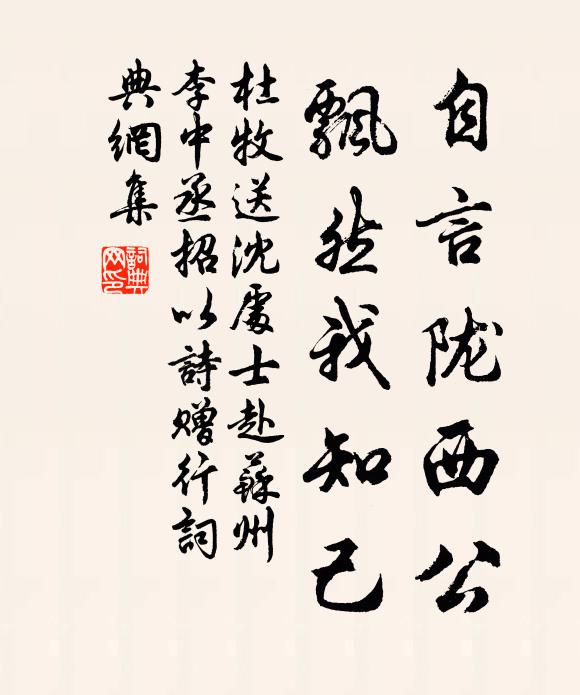 自言陇西公
飄然我知己
杜牧送沈處士赴蘇州
李中丞招以詩贈行詞
典網集
詞典
网印